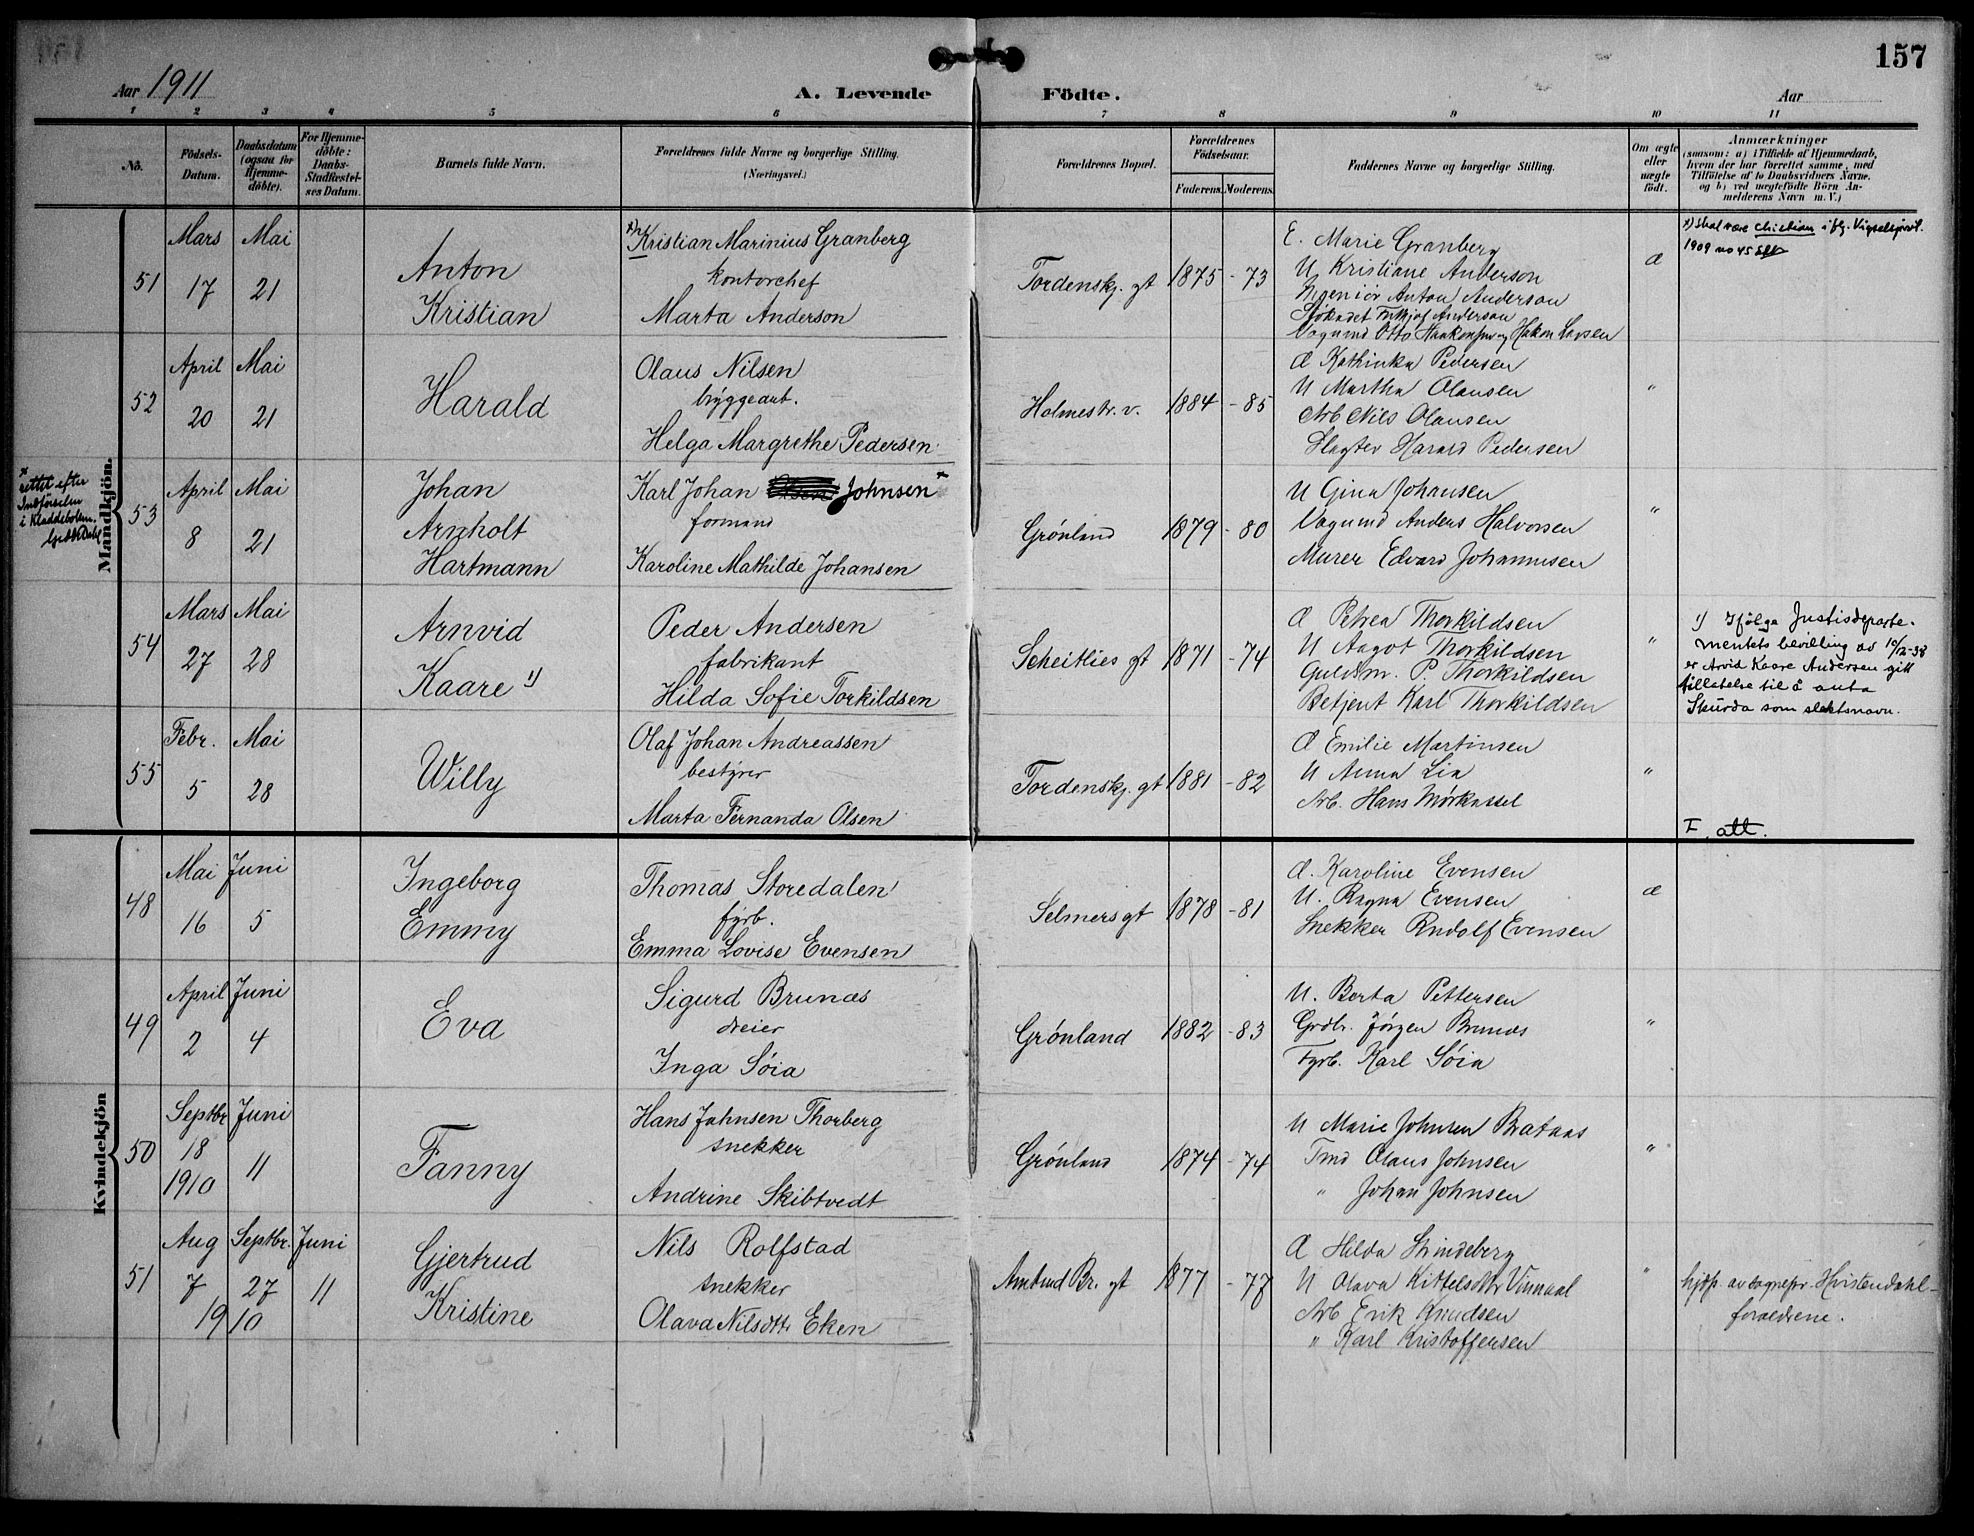 157
Aar 1911
A. Levende Födte.
Aar
1 2 3 4 5 6 7 8 9 10 11
No.
Födsels-Datum.
Daabsdatum (ogsaa for Hjemmedöbte).
For Hjemmedöbte: Daabs-Stadfæstelses Datum.
Barnets fulde Navn.
Forældrenes fulde Navne og borgerlige Stilling. (Næringsvei.)
Forældrenes Bopæl.
Forældrenes Födselsaar.
Faderens. Moderens.
Faddernes Navne og borgerlige Stilling.
Om ægte eller uægte födt.
Anmærkninger
(saasom: a) i Tilfælde af Hjemmedaab,
hvem der har forrettet samme, med
Tilföielse af to Daabsvidners Navne,
og b) ved uægtefödte Börn An-
melderens Navn m. V.)
Mandkjön.
51
Mars 17
Mai 21
Anton
Kristian
Kristian Marinius Granberg
kontorchef
Marta Anderson
Tordenskj. gt
1875 - 73
E. Marie Granberg
U Kristiane Anderson
Ingeniör Anton Anderson
Fritjof Anderson
Vognmd Otto Haakonsen og Hakon Larsen
æ
x) skal være Christian ifg. Vigselsprot.
1909 no 45
52
April 20
Mai 21
Harald
Olaus Nilsen
bryggearb.
Helga Margrethe Pedersen
Holmestr. v.
1884 - 85
Æ Kathinka Pedersen
U Martha Olausen
Arb Nils Olausen
Slagter Harald Pedersen
"
x
rettet efter
Indförselen
i Kladdeboken.
53
April 8
Mai 21
Johan
Arnholt
Hartmann
Karl Johan Johnsen x
formand
Karoline Mathilde Johansen
Grønland
1879 - 80
U Gina Johansen
Vognmd Anders Halvorsen
Murer Edvard Johannesen
"
54
Mars 27
Mai 28
Arnvid
Kaare 1)
Peder Andersen
fabrikant
Hilda Sofie Torkildsen
Scheitlies gt
1871 - 74
Æ Petrea Thorkildsen
U Aagot Thorkildsen
Guldsm. P. Thorkildsen
Betjent Karl Thorkildsen
"
1) Ifölge Justisdeparte-
mentets bevilling av 10/12-38
er Arvid Kaare Andersen gitt
tillatelse til å anta
Skurda som slektsnavn.
55
Febr. 5
Mai 28
Willy
Olaf Johan Andreassen
bestyrer
Marta Fernanda Olsen
Tordenskj. gt
1881 - 82
Æ Emilie Martinsen
U Anna Lia
Arb. Hans Mörkassel
"
F. att.
Kvindekjön
48
Mai 16
Juni 5
Ingeborg
Emmy
Thomas Storedalen
fyrb.
Emma Lovise Evensen
Selmers gt
1878 - 81
Æ. Karoline Evensen
U. Ragna Evensen
Snekker Rudolf Evensen
æ
49
April 2
Juni 4
Eva
Sigurd Brunæs
dreier
Inga Söia
Grønland
1882 - 83
U. Berta Pettersen
Grdbr. Jørgen Brunæs
Fyrb. Karl Söia
"
50
Septbr 18 1910
Juni 11
Fanny
Hans Johnsen Thorberg
snekker
Andrine Skibtvedt
Grønland
1874 - 74
U Marie Johnsen Brataas
Tmd Olaus Johnsen
" Johan Johnsen
"
51
Aug 7
Septbr. 27
1910
Juni 11
Gjertrud
Kristine
Nils Rolfstad
snekker
Olava Nilsdtr Eken
Amtmd Br. gt
1877 - 77
Æ Hilda Strindeberg
U Olava Kittelsdtr Vinnaal
Arb Erik Knudsen
" Karl Kristoffersen
"
hjdp. av sognepr. Hvistendahl -
forældrene.